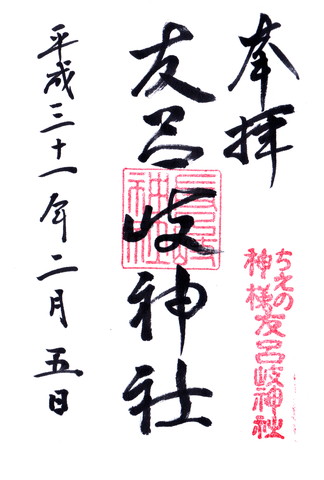 奉拝
ちえの
神様友呂岐神社
友呂岐神社
平成三十一年二月五日